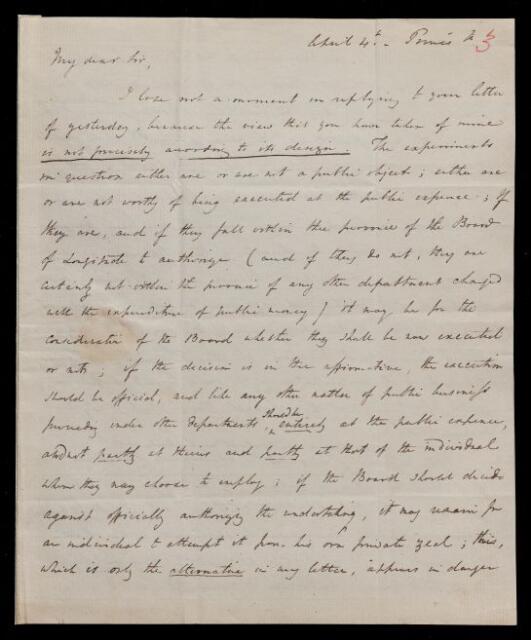 April 4th. - Princes St
My dear Sir,
I lose not a moment in replying to your letter
of yesterday, because the view that you have taken of mine
is not precisely according to its design. The experiments
in question either are or are not a public object; either are
or are not worthy of being executed at the public expence; If
they are, and if they fall within the province of the Board
of Longitude to authorize (and if they do not, they are
certainly not within the province of any other department charged
with the expenditure of public money) it may be for the
consideration of the Board whether they shall be now executed
or not; if the decision is in the affirmative, the execution
should be official, and like any other matter of public business
pursuing under other departments, should be entirely at the public expence,
and not partly at theirs and partly at that of the individual
whom they may choose to employ: if the Board should decide
against officially authorizing the undertaking, it may remain for
an individual to attempt it from his own private zeal; this,
which is only the alternative in my letter, appears in danger